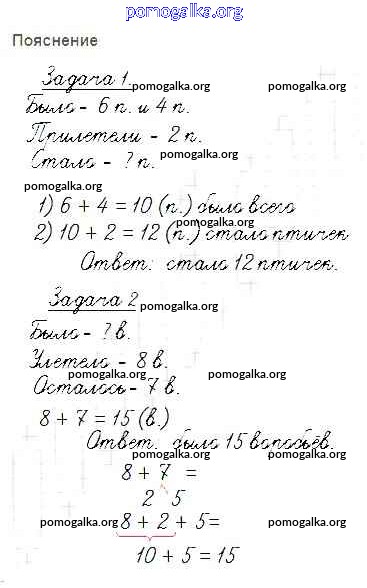 pomogalka.org
Пояснение
Задача 1
pomogalka.org pomogalka.org
Было - 6 п. и 4 п.
Прилетели - 2 п.
Стало - ? п. pomogalka.org
pomogalka.org
1) 6 + 4 = 10 (п.) было всего
pomogalka.org
2) 10 + 2 = 12 (п.) стало птичек
Ответ: стало 12 птичек.
Задача 2 pomogalka.org
Было - ? в.
Улетело - 8 в.
pomogalka.org pomogalka.org
Осталось - 7 в.
8 + 7 = 15 (в.)
Ответ: было 15 воробьёв.
pomogalka.org pomogalka.org
8 + 7 =
2 5
pomogalka.org 8 + 2 + 5 = pomogalka.org
10 + 5 = 15